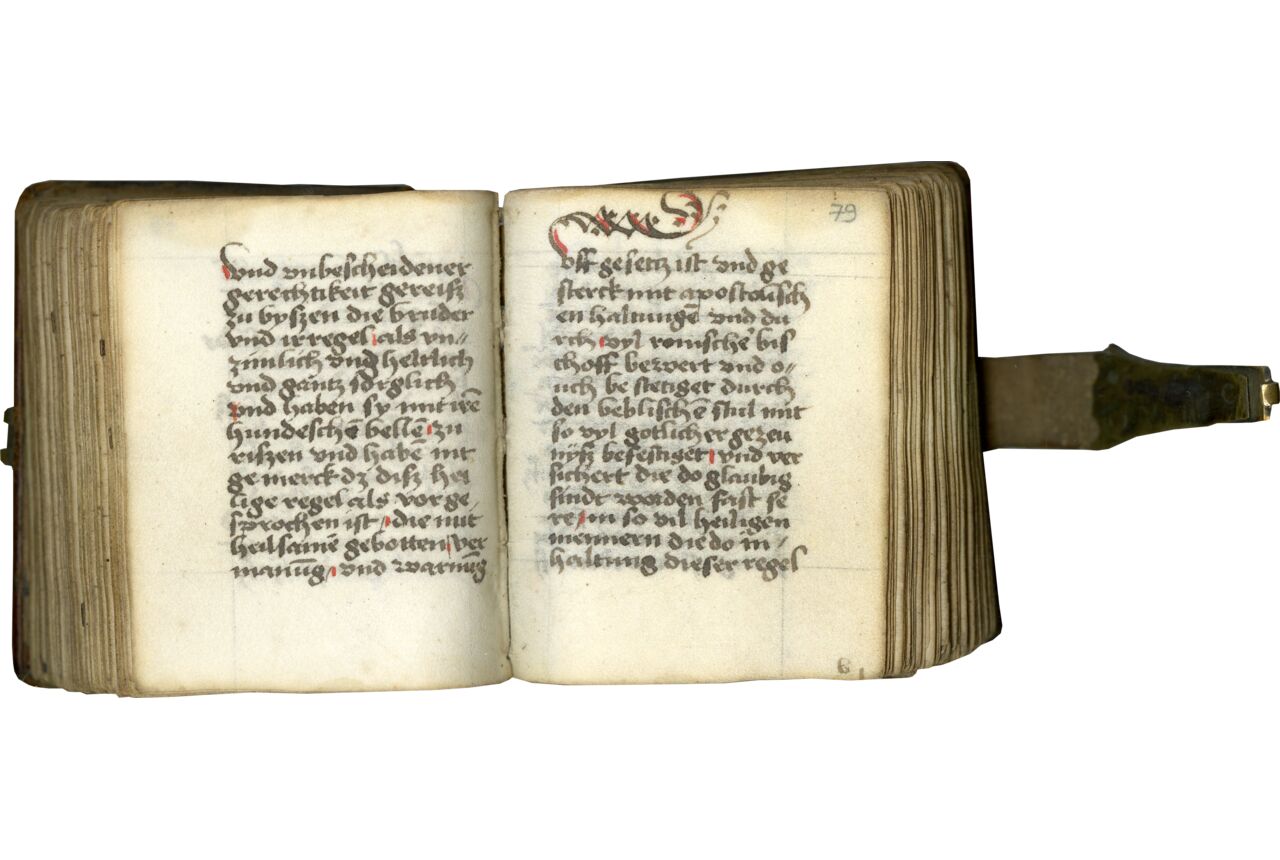 vnd vnbescheidener
gerechtikeit gereisz
zu byszen die bruder
vnd ir regel als vn⸗
zimlich vnd heltlich
vnd gantz sorglich
vnd haben sy mit irē
hundeschē bellē zu
riszen vnd habē nit
gemerck dz disz hei
lige regel als vor ge
sprochen ist / die mit
heilsamē gebotten / ver
manūg / vnd warnūg
79
vff gesetz ist vnd ge
sterck mit apostolisch
en haltungē vnd du
rch vyl romischē bis
choff bewert vnd o⸗
uch bestetiget durch
den beblischē stul mit
so vyl gotlicher gezeu
nysz befestiget / vnd ver
sichert die do glaubig
sindt worden fast se
re / in so vil heiligen
mennern die do in⸗
haltung dieser regel